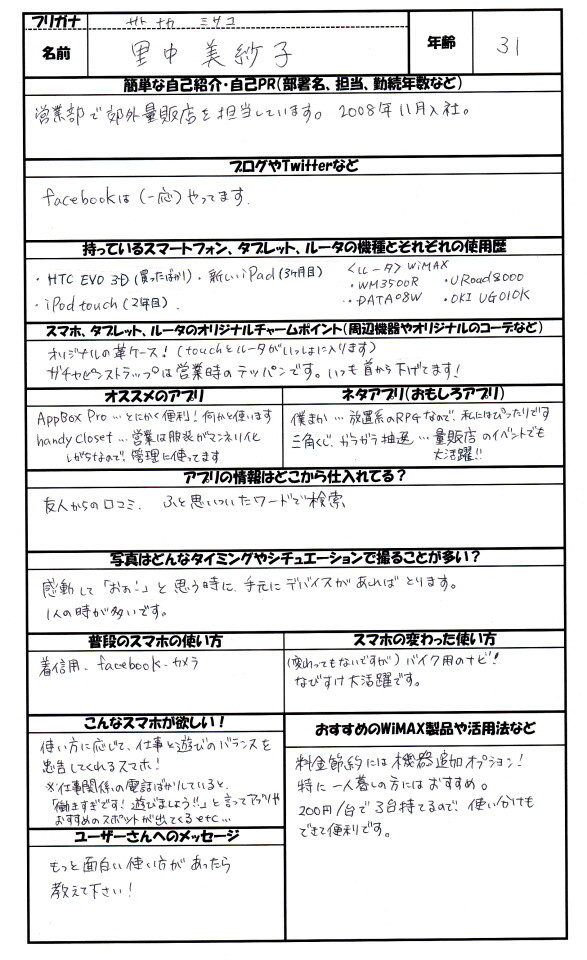 フリガナ
サトナカ ミサコ
名前
里中 美紗子
年齢
31
簡単な自己紹介・自己PR(部署名、担当、勤続年数など)
営業部で郊外量販店を担当しています。2008年11月入社。
ブログやTwitterなど
facebookは(一応)やってます.
持っているスマートフォン、タブレット、ルータの機種とそれぞれの使用歴
・HTC EVO 3D(買ったばかり)・新しいiPad(3ヶ月目)
・iPod touch(2年目).
<ルータ> WiMAX
・WM3500R ・URoad8000
・DATA08W ・OKI UG010K
スマホ、タブレット、ルータのオリジナルチャームポイント(周辺機器やオリジナルのコーデなど)
オリジナルの革ケース!(touchとルータがいっしょに入ります)
ガチャピンストラップは営業時のテッパンです。いつも首から下げてます!
オススメのアプリ
AppBox Pro…とにかく便利!何かと使います
handy closet…営業は服装がマンネリ化
しがちなので、管理に使ってます
ネタアプリ(おもしろアプリ)
僕まか…放置系のRPGなので、私にはぴったりです
三角くじ、ガラガラ抽選…量販店のイベントでも
大活躍!!
アプリの情報はどこから仕入れてる?
友人からの口コミ. ふと思いついたワードで検索
写真はどんなタイミングやシチュエーションで撮ることが多い?
感動して「おぉ!」と思う時に、手元にデバイスがあればとります。
1人の時が多いです。
普段のスマホの使い方
着信用、facebook・カメラ
スマホの変わった使い方
(変わってもないですが)バイク用のナビ!
なびすけ大活躍です。
こんなスマホが欲しい!
使い方に応じて、仕事と遊びのバランスを
忠告してくれるスマホ!
※仕事関係の電話ばかりしていると、
「働きすぎです!遊びましょう!!」と言ってアプリや
おすすめのスポットが出てくるetc…
おすすめのWiMAX製品や活用法など
料金節約には機器追加オプション!
特に一人暮しの方にはおすすめ。
200円/台で3台持てるので、使い分けも
できて便利です。
ユーザーさんへのメッセージ
もっと面白い使い方があったら
教えて下さい!